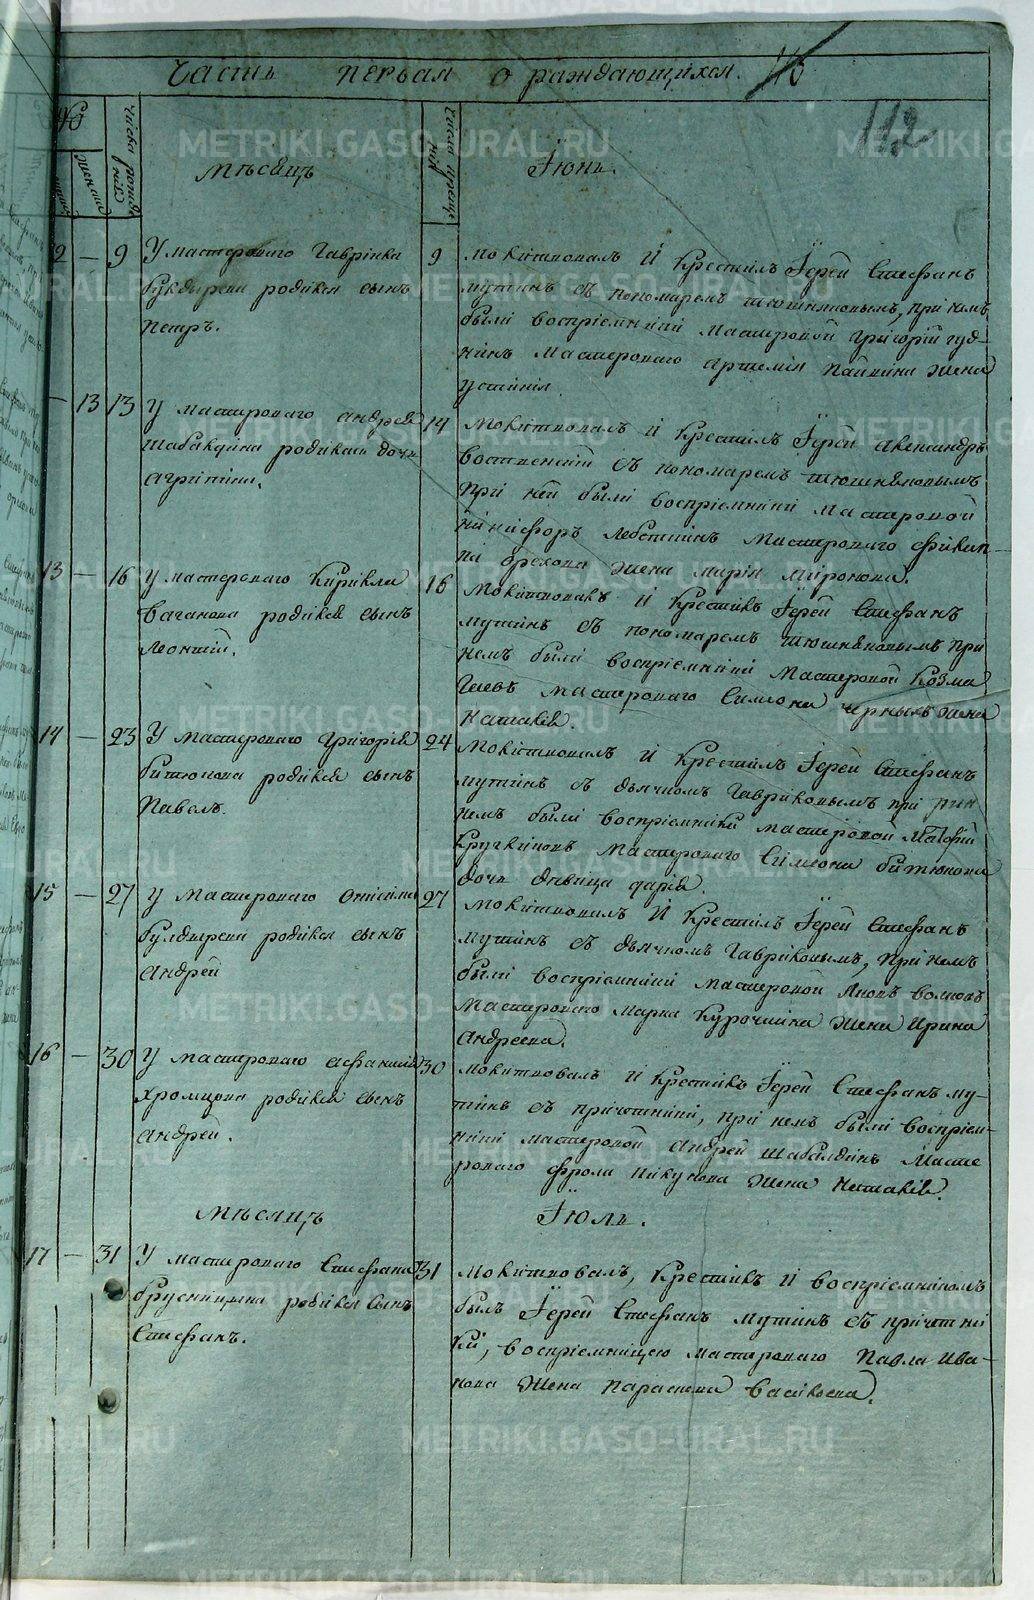 Часть первая о раждающихся. 46
112
46
женска
числа родив
числа креще
нiй
Мѣсяцъ
Iюнь.
12 — 9 У мастероваго Гаврiила
булдырева родился сынъ
Петръ.
9 Молитвовалъ И Крестилъ Iерей Стефанъ
мутинъ съ пономаремъ тюшняковымъ, при немъ
были восприемники мастеровой григорiй гуд-
нинъ мастероваго артемiя жена
устинiя
— 13 13 У мастероваго андрея
шабалдина родилась дочь
агрипина.
14 Молитвовалъ И Крестилъ Iерей александръ
съ пономаремъ тюшняковымъ
При ней были восприемники мастеровой
никифоръ мастероваго филип-
па орехова жена марiя миронова.
13 — 16 У мастероваго Кирилла
вачанова родился сынъ
Леонтiй.
16 Молитвовалъ И Крестилъ Iерей Стефанъ
мутинъ съ пономаремъ тюшняковымъ при
немъ были восприемники Мастеровой Козма
мастероваго Симеона черныхъ жена
наталiя.
14 — 23 У мастероваго григорiя
битюкова родился сынъ
Павелъ.
24 Молитвовалъ И Крестилъ Iерей Стефанъ
мутинъ съ дьячкомъ Гавриловымъ при
немъ были восприемники мастеровой Матфiй
кручининъ мастероваго Симеона битюкова
дочь дѣвица дарiя.
15 — 27 У Мастероваго Онисима
булдырева родился сынъ
андрей
27 Молитвовалъ И Крестилъ Iерей Стефанъ
мутинъ съ дьячкомъ Гавриловымъ, при немъ
были восприемники мастеровой Яковъ волковъ
мастероваго марка Курочкина жена Ирина
андреева.
16 — 30 У мастероваго афанасiя
хромцова родился сынъ
андрей.
30 Молитвовалъ И Крестилъ Iерей Стефанъ му-
тинъ съ причетники, при немъ были восприем-
ники мастеровой андрей шабалдинъ Масте
роваго фрола пикунова жена наталiя.
Мѣсяцъ
Iюль.
17 — 31 У мастероваго Стефана
брусницына родился сынъ
Стефанъ.
31 Молитвовалъ, Крестилъ И восприемникомъ
былъ Iерей Стефанъ мутинъ съ причетни
ки, восприемницею мастероваго Павла ива-
нова жена параскева васильева.
METRIKI.GASO-URAL.RU